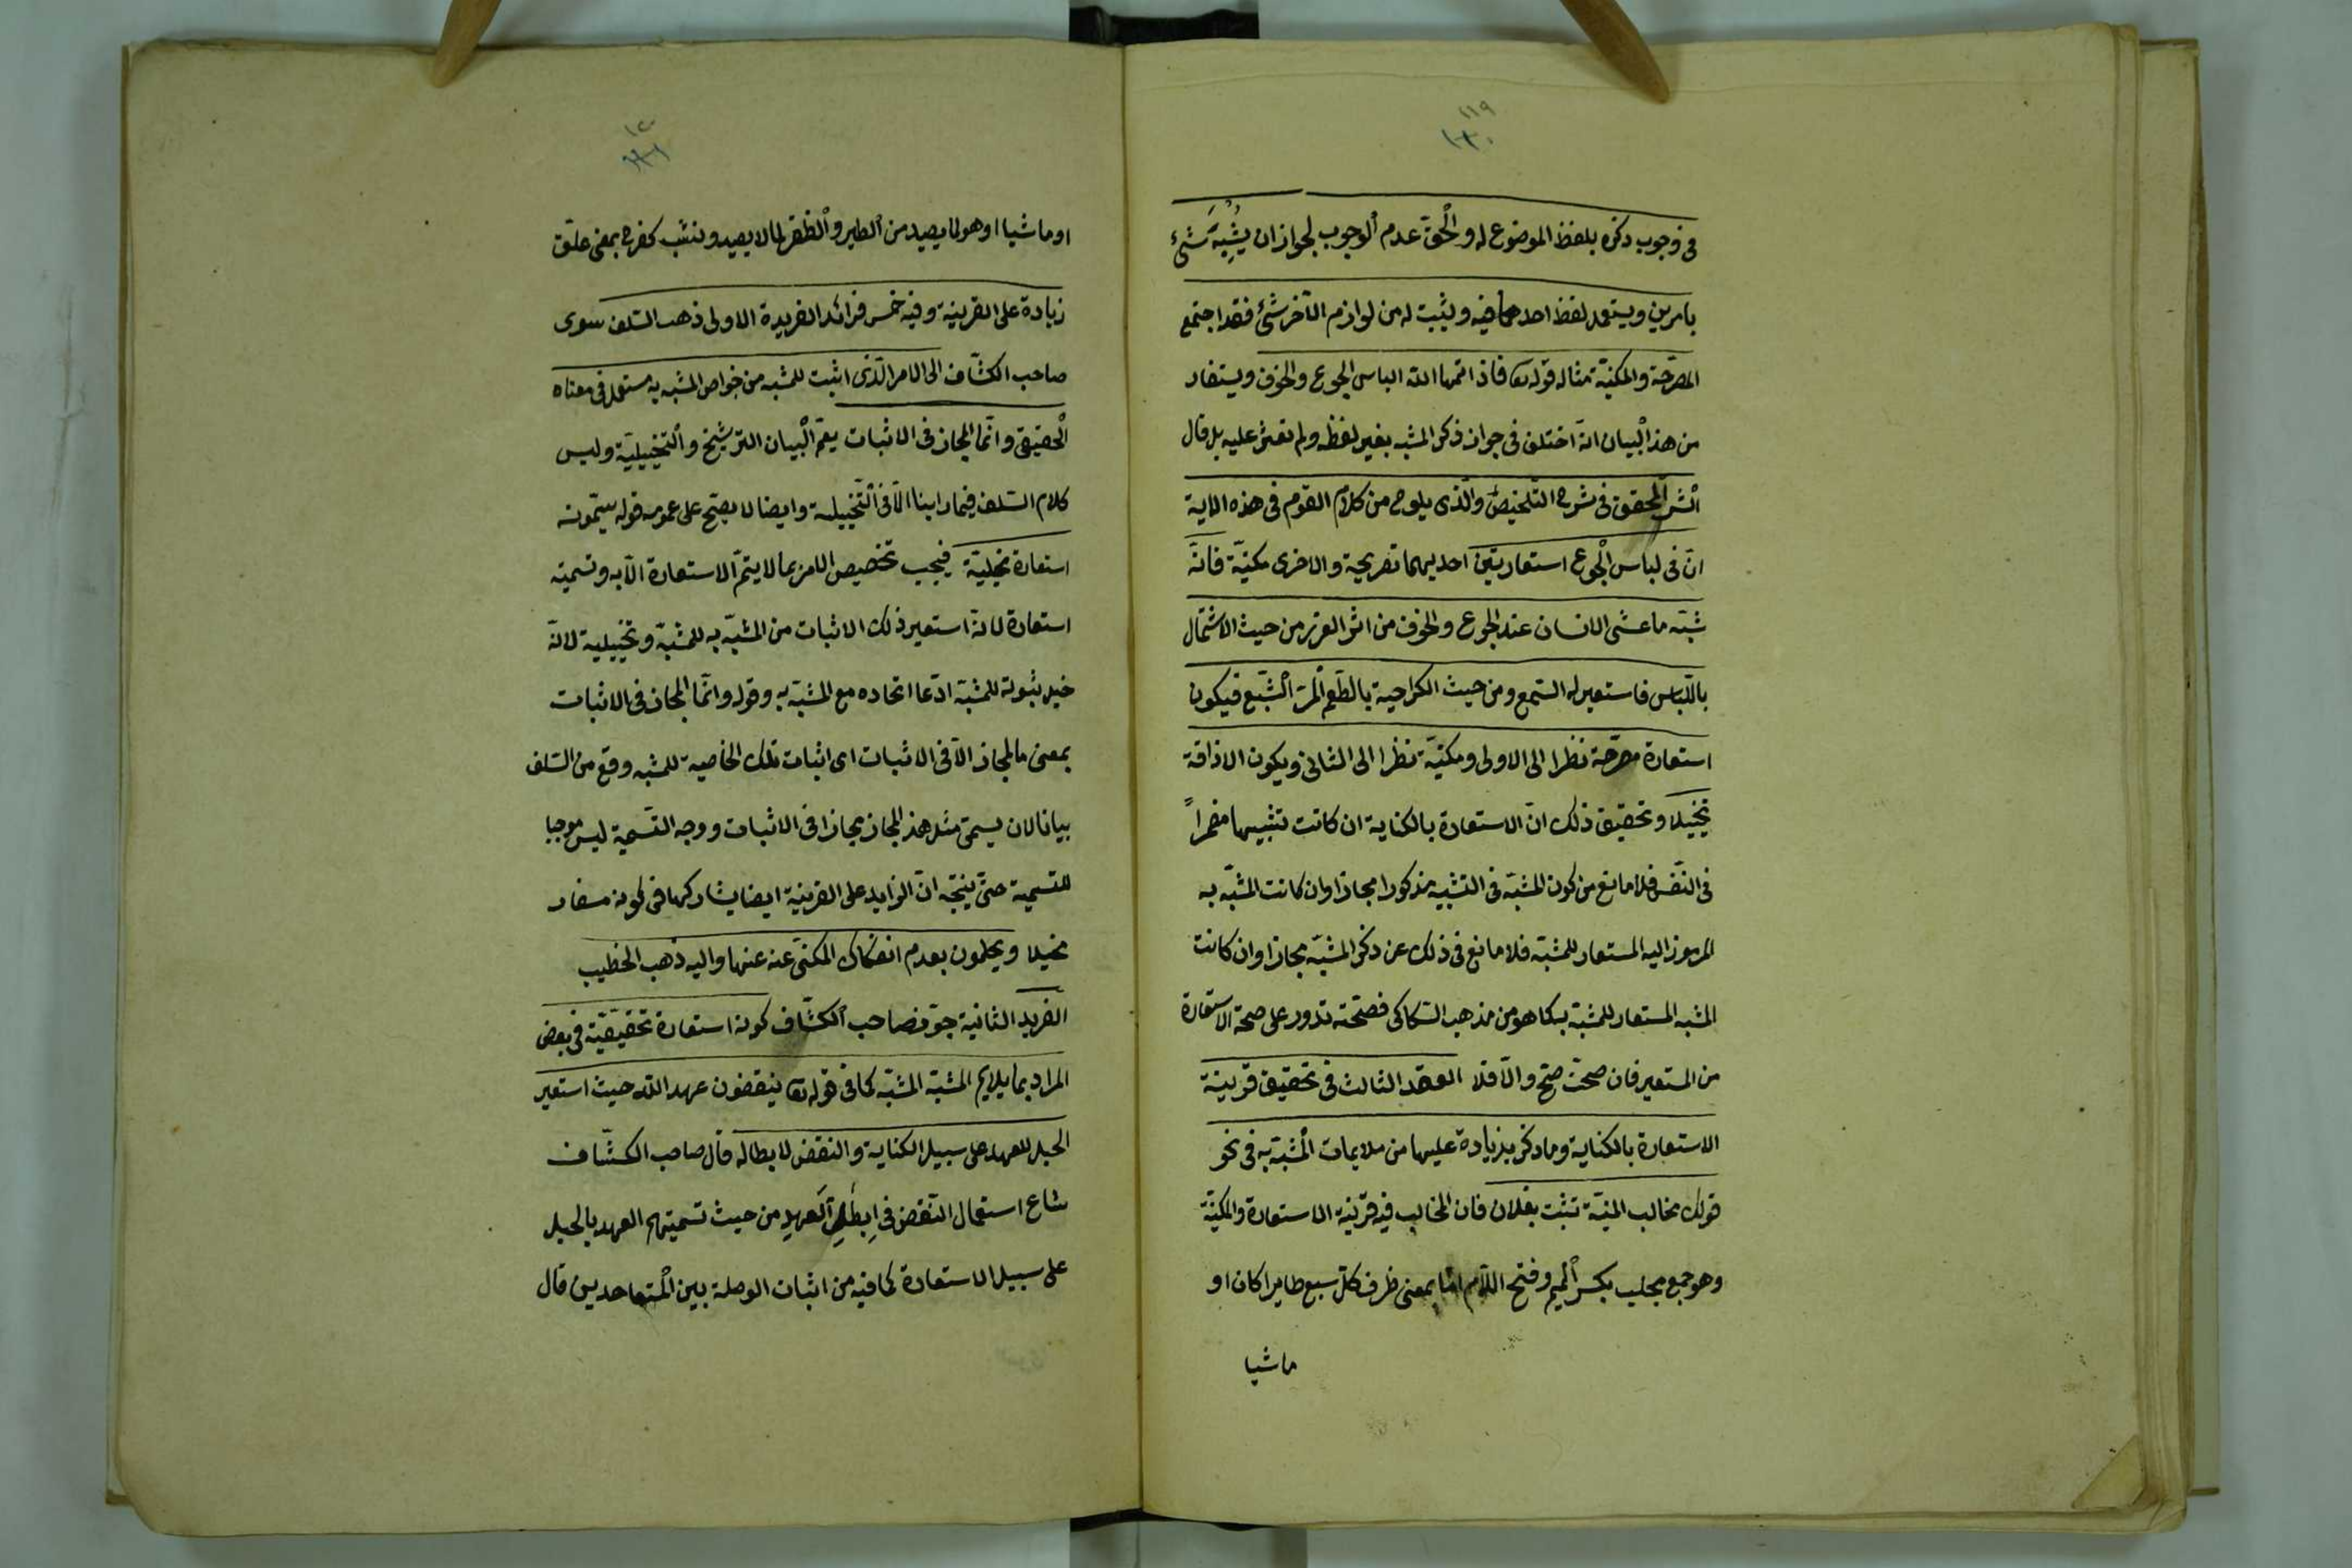 ١١٩
١٢٠
فى وجوب ذكره بلفظ الموضوع له والحق عدم الوجوب لجواز ان يشبه شئ
بامرين ويستعمل لفظ احدهما فيه ويثبت له من لوازم الآخر شئ فقد اجتمع
المصرحة والمكنية مثاله قوله تعا فاذاقها الله لباس الجوع والخوف ويستفاد
من هذا البيان انه اختلف فى جواز ذكر المشبه بغير لفظه ولم نعثر عليه بل قال
الشر المحقق فى شرح التلخيص والذى يلوح من كلام القوم فى هذه الاية
ان فى لباس الجوع استعارتين احديهما تصريحية والاخرى مكنية فانه
شبه ما غشى الانسان عند الجوع والخوف من اثر الضرر من حيث الاشتمال
باللباس فاستعير له اسمه ومن حيث الكراهية بالطعم المر البشع فيكون
استعارة مصرحة نظرا الى الاولى ومكنية نظرا الى الثانى ويكون الاذاقة
تخييلا وتحقيق ذلك ان الاستعارة بالكناية ان كانت تشبيها مضمرا
فى النفس فلا مانع من كون المشبه فى التشبيه مذكورا مجازا وان كانت المشبه به
المرموز اليه المستعار للمشبه فلا مانع فى ذلك عن ذكر المشبه مجازا وان كانت
المشبه المستعار للمشبه به كما هو من مذهب السكاكى فصحته تدور على صحة الاستعارة
من المستعير فان صحت صح والا فلا العقد الثالث فى تحقيق قرينة
الاستعارة بالكناية وما ذكر بزيادة عليها من ملايمات المشبه به فى نحو
قولك مخالب المنية نشبت بفلان فان المخالب فيه قرينة الاستعارة والمكنية
وهو جمع مخلب بكسر الميم وفتح اللام اما بمعنى ظرف كل سبع طايرا كان او
ماشيا
١٢٠
١٢١
او ماشيا او هو لما يصيد من الطير والظفر لما لا يصيد ونشب كفرح بمعنى علق
زيادة على القرينة وفيه خمس فرائد الفريدة الاولى ذهب السلف سوى
صاحب الكشاف الى الامر الذى اثبت للمشبه من خواص المشبه به مستعمل فى معناه
الحقيقى وانما المجاز فى الاثبات يعم البيان الترشيح والتخييلية وليس
كلام السلف فيما راينا الا فى التخييلية وايضا لا يصح على عمومه قوله يسمونه
استعارة تخييلية فيجب تخصيص الامر بما لا يتم الاستعارة الا به وتسميته
استعارة لانه استعير ذلك الاثبات من المشبه به للمشبه وتخييلية لانه
خيل ثبوته للمشبه ادعا اتحاده مع المشبه به وقوله وانما المجاز فى الاثبات
بمعنى ما المجاز الا فى الاثبات اى اثبات تلك الخاصية للمشبه وقع من السلف
بيانا لان يسمى مثل هذ المجاز مجازا فى الاثبات ووجه التسمية ليس موجبا
للتسمية حتى يتجه ان الزايد على القرينة ايضا يشاركها فى كونه مسفاد
مخيلا ويحكمون بعدم انفكاك المكنى عنه عنها واليه ذهب الخطيب
الفريد الثانية جوز صاحب الكشاف كونه استعارة تحقيقية فى بعض
المراد بما يلايم المشبه المشبه كما فى قوله تعا ينقضون عهد الله حيث استعير
الحبل للعهد على سبيل الكناية والنقض لابطاله قال صاحب الكشاف
شاع استعمال النقض فى ابطال العهد من حيث تسميتهم العهد بالحبل
على سبيل الاستعارة لما فيه من اثبات الوصلة بين المتعاهدين قال